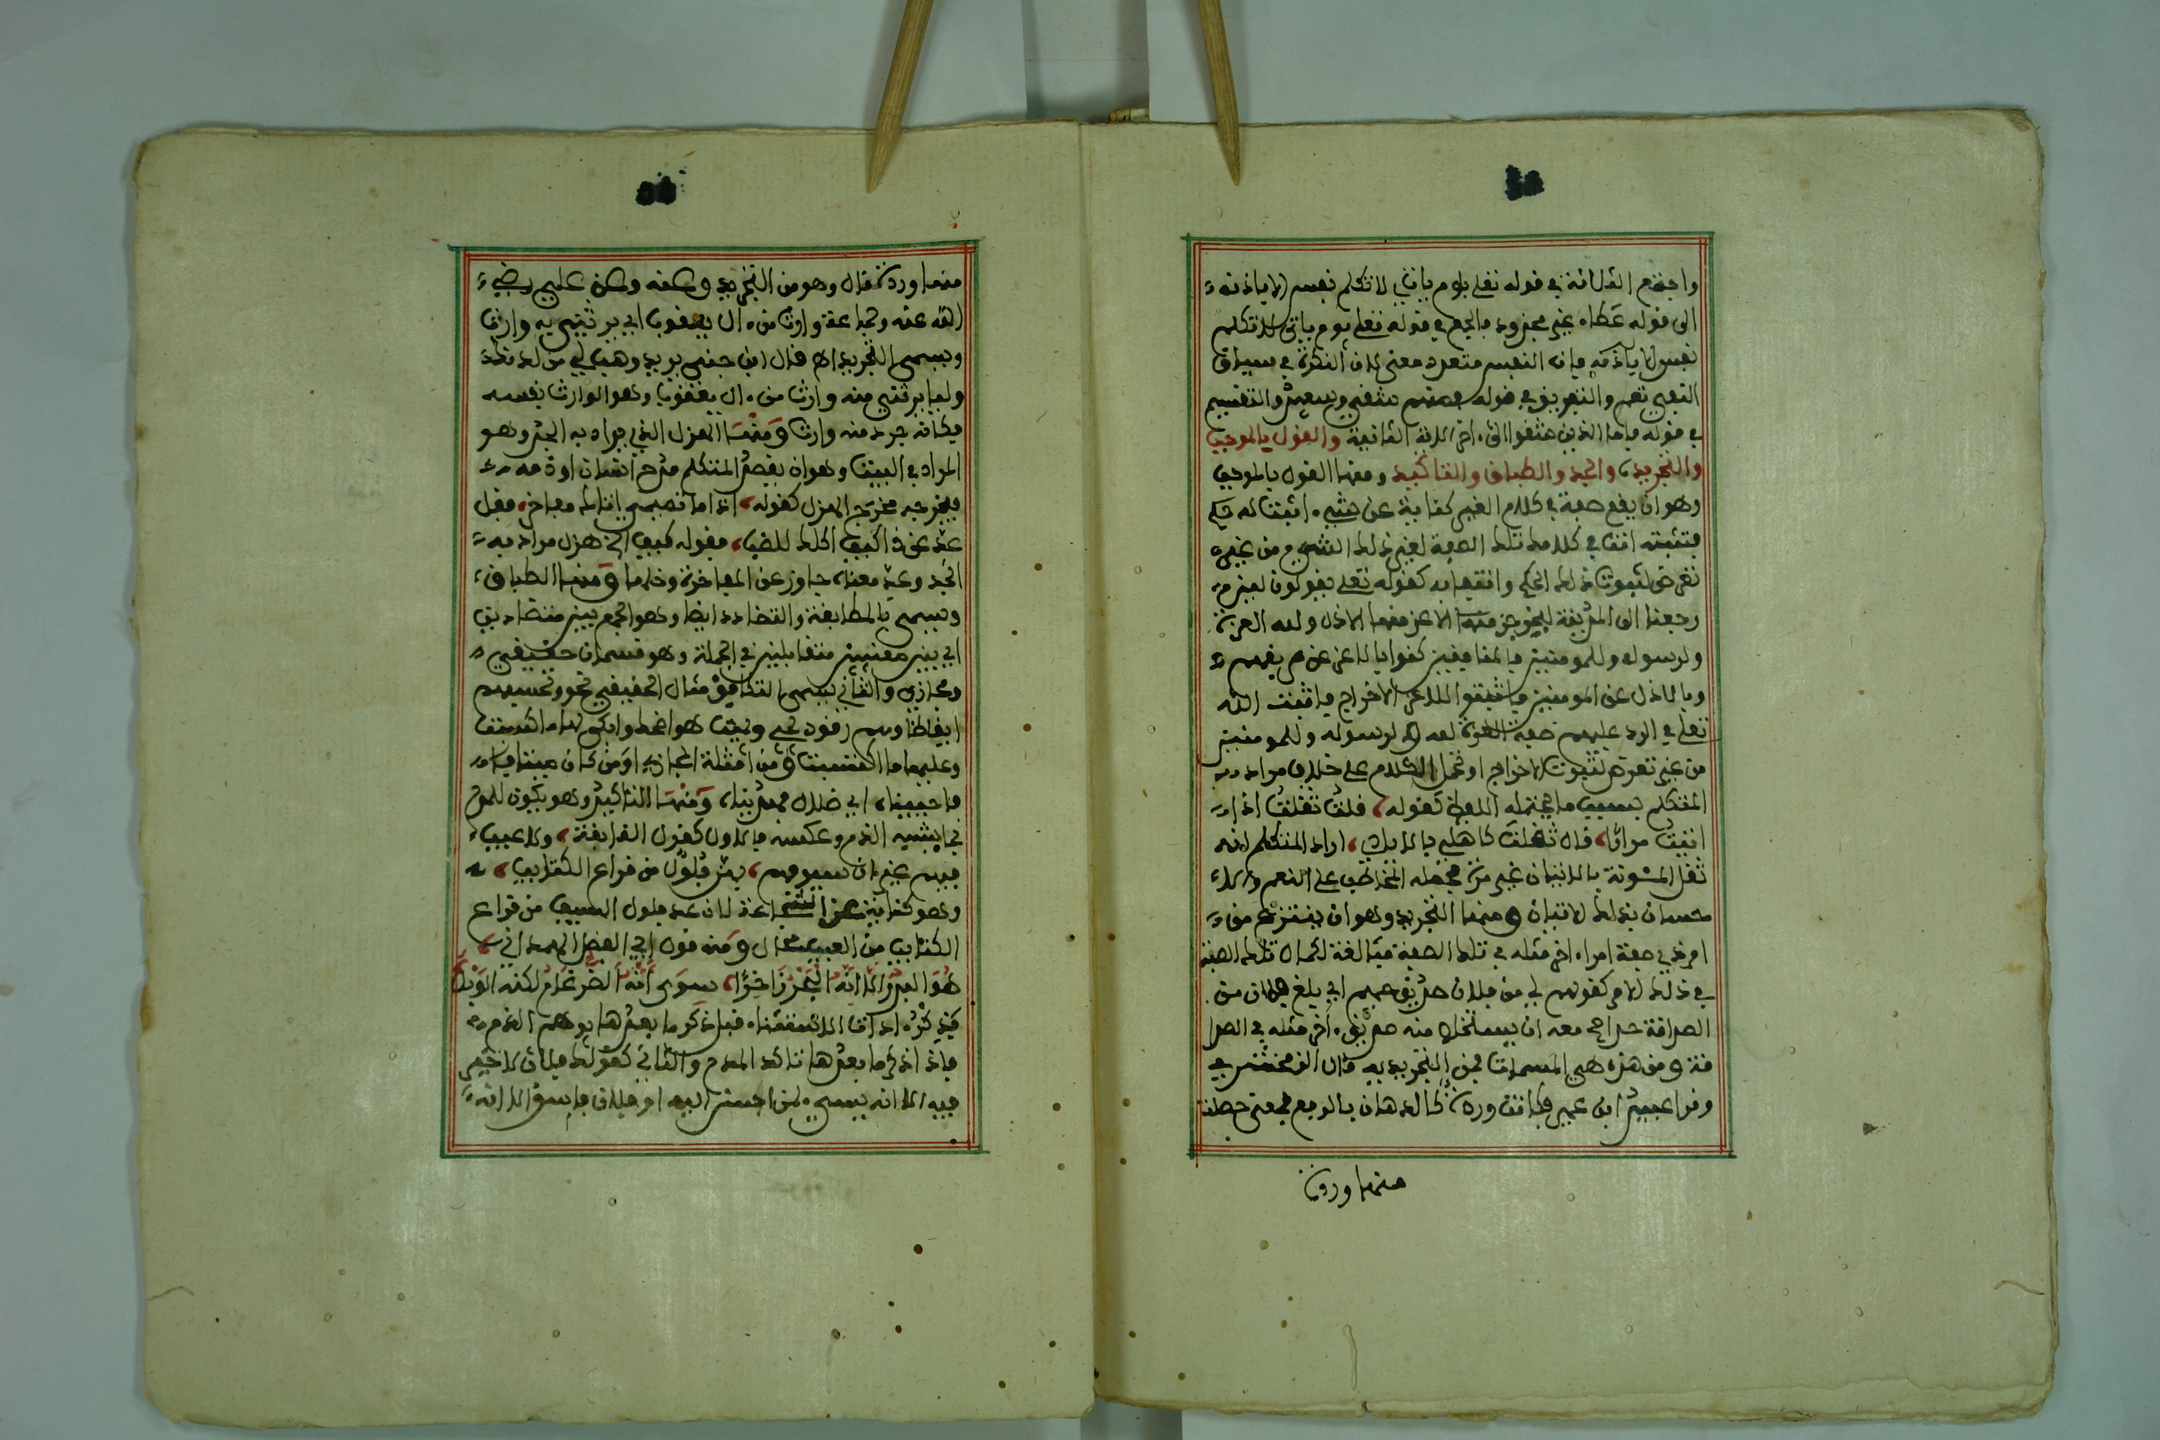 واجتمع الثلاثة في قوله تعلى يوم ياتي لا تكلم نفس الا باذنه
الى قوله عطاء غير مجذوذ فالجمع في قوله تعلى يوم ياتي لا تكلم
نفس الا باذنه فان النفس متعدد معنى لان النكرة في سياق
النفي تعم والتفريق في قوله فمنهم شقي وسعيد والتقسيم
في قوله فاما الذين شقوا الى اخر الاية الثانية والقول بالموجب
والتجريد والجد والطباق والتاكيد ومنها القول بالموجب
وهو ان يقع صفة في كلام الغير كناية عن شيء اثبت له حكم
فتثبته انت في كلامك تلك الصفة لغير ذلك الشيء من غير
تعرض لثبوت ذلك الحكم وانتفائه كقوله تعلى يقولون لين
رجعنا الى المدينة ليخرجن الاعز منها الاذل ولله العزة
ولرسوله وللمومنين فالمنافقين كنوا بالاعز عن فريقهم
وبالاذل عن المومنين فاثبتوا للاعز الاخراج فاثبت الله
تعلى في الرد عليهم صفة العزة لله ولرسوله وللمومنين
من غير تعرض لثبوت الاخراج او تحمل الكلام على خلاف مراد
المتكلم بسبب ما يحتمله اللفظ كقوله قلت ثقلت اذ
اتيت مرارا قال ثقلت كاهلي بالايادي اراد المتكلم انه
ثقل المئونة بالاتيان غير مرة فحمله المخاطب على النعم والا
حسان بذلك الاتيان ومنها التجريد وهو ان ينتزع من
امر ذي صفة امرا اخر مثله في تلك الصفة مبالغة لكمال تلك الصفة
في ذلك الامر كقولهم لي من فلان صديق حميم اي بلغ فلان من
الصداقة حدا صح معه ان يستخلص منه صديق اخر مثله في الصدا
قة ومن هذه هي المسمات بمن التجريدية قال الزمخشري
وقرا عبيد ابن عمير فكانت وردة كالدهان بالرفع بمعنى حصلت
منها وردة
منها وردة قال وهو من التجريد
الله عنه وجماعة وارث من ال يعقوب اي يرثني به وارث
ويسمى التجريد ا ه قال ابن جني يريد وهب لي من لدنك
وليا يرثني منه وارث من ال يعقوب وهو الوارث نفسه
فكانه جرد منه وارثا ومنها الهزل الذي يراد به الجد وهو
المراد في البيت وهو ان يقصد المتكلم مدح انسان او ذمه
فيخرجه مخرج الهزل كقوله اذا ما تميمي اتاك مفاخر فقل
عد عن ذا كيف اكلك للضب فقوله كيف الخ هزل مراد به
الجد وعد معناه جاوز عن المفاخرة وخلها ومنها الطباق
ويسمى بالمطابقة والتضاد ايضا وهو الجمع بين متضادين
اي بين معنيين متقابلين في الجملة وهو قسمان حقيقي
ومجازي والثاني يسمى التكافؤ مثال الحقيقي نحو وتحسبهم
ايقاظا وهم رقود يحيي ويميت هو اضحك وابكى لها ما كسبت
وعليها ما اكتسبت ومن امثلة المجازي او من كان ميتا
فاحييناه اي ضالا فهديناه ومنها التاكيد وهو يكون للمدح
بما يشبه الذم وعكسه فالاول كقول النابغة ولا عيب
فيهم غير ان سيوفهم بهن فلول من قراع الكتايب
وهو كناية عن الشجاعة لان عد فلول السيف من قراع
الكتايب من العيب محال ومنه قول ابي الفضل الهمداني
هو البدر الا انه البحر زاخرا سوى انه الضرغام لكنه الوبل
فبذكره اداة الاستثناء قبل ذكر ما بعدها يوهم الذم
فاذا ذكر ما بعدها تاكد المدح والثاني كقولك فلان لا خير
فيه الا انه يسيء لمن احسن اليه او فلان فاسق الا انه